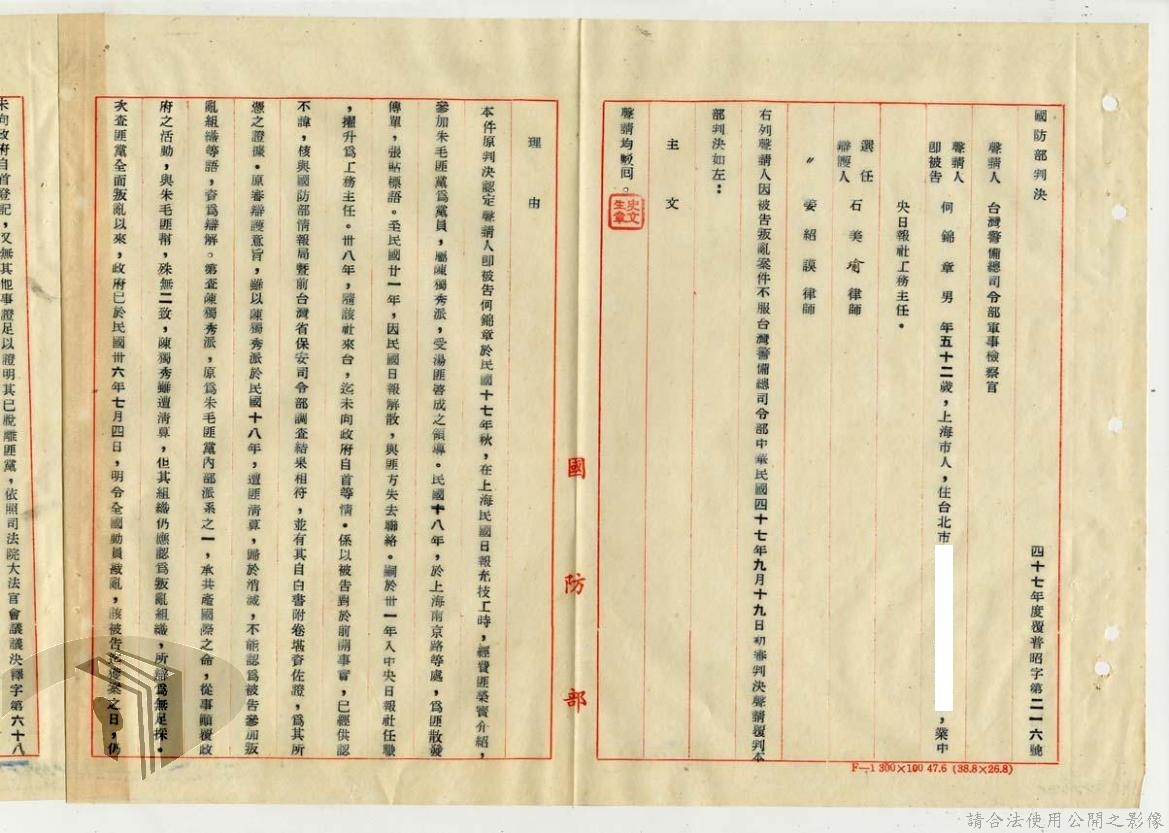 國防部判決
四十七年度覆普昭字第二一六號
聲請人 台灣警備總司令部軍事檢察官
聲請人
即被告 何錦章 男 年五十二歲，上海市人，住台北市 ，業中
央日報社工務主任。
選任
辯護人 石美瑜 律師
〃 姜紹謨 律師
右列聲請人因被告叛亂案件不服台灣警備總司令部中華民國四十七年九月十九日初審判決聲請覆判本
部判決如左：
主文
聲請均駁回。
史文生章
國防部
理由
本件原判決認定聲請人即被告何錦章於民國十七年秋，在上海民國日報充技工時，經賈匪榮實介紹，
參加朱毛匪黨為黨員，屬陳獨秀派，受湯匪啓成之領導。民國十八年，於上海南京路等處，為匪散發
傳單，張貼標語。至民國廿一年，因民國日報解散，與匪方失去聯絡。嗣於廿一年入中央日報社任職
，擢升為工務主任。卅八年，隨該社來台，迄未向政府自首等情。係以被告對於前開事實，已經供認
不諱，核與國防部情報局暨前台灣省保安司令部調查結果相符，並有其自白書附卷堪資佐證，為其所
憑之證據。原審辯護意旨，雖以陳獨秀派於民國十八年，遭匪清算，歸於消滅，不能認為被告參加叛
亂組織等語，資為辯解。第查陳獨秀派，原為朱毛匪黨內部派系之一，承共產國際之命，從事顛覆政
府之活動，與朱毛匪幫，殊無二致，陳獨秀雖遭清算，但其組織仍應認為叛亂組織，所辯為無足採。
次查匪黨全面叛亂以來，政府已於民國卅六年七月四日，明令全國動員戡亂，該被告迄獲案之日，仍
未向政府自首登記，又無其他事證足以證明其已脫離匪黨，依照司法院大法官會議議決釋字第六十八
F—1 300×100 47.6 (38.8×26.8)
請合法使用公開之影像